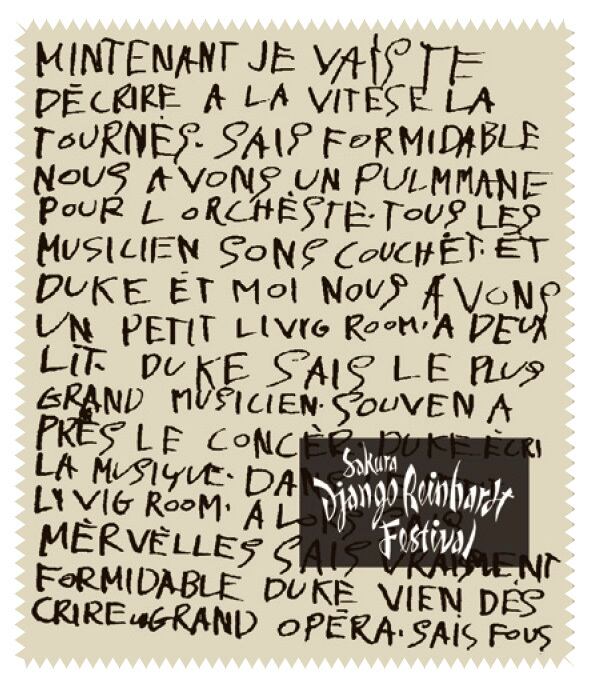 MINTENANT JE VAIS TE
DÈCRIRE A LA VITESE LA
TOURNÈS. SAIS FORMIDABLE
NOUS AVONS UN PULMMANE
POUR L ORCHÈSTE. TOUS LES
MUSICIEN SONS COUCHÈT. ÈT
DUKE ÈT MOI NOUS AVONS
UN PETIT LIVIG ROOM. A DEUX
LIT. DUKE SAIS LE PLUS
GRAND MUSICIEN. SOUVEN A
PRÈS LE CONCÈR DUKE ÈCRI
LA MUSIQUE. DAN
LIVIG ROOM. A L
MÈRVÈLLES SAIS VRAIMENT
FORMIDABLE DUKE VIEN DÈS
CRIRE GRAND OPÈRA. SAIS FOUS
Sakura
Django Reinhardt
Festival